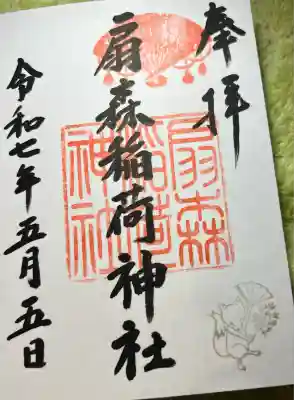 奉拝
扇森稲荷神社
扇森稲荷神社
令和七年五月五日